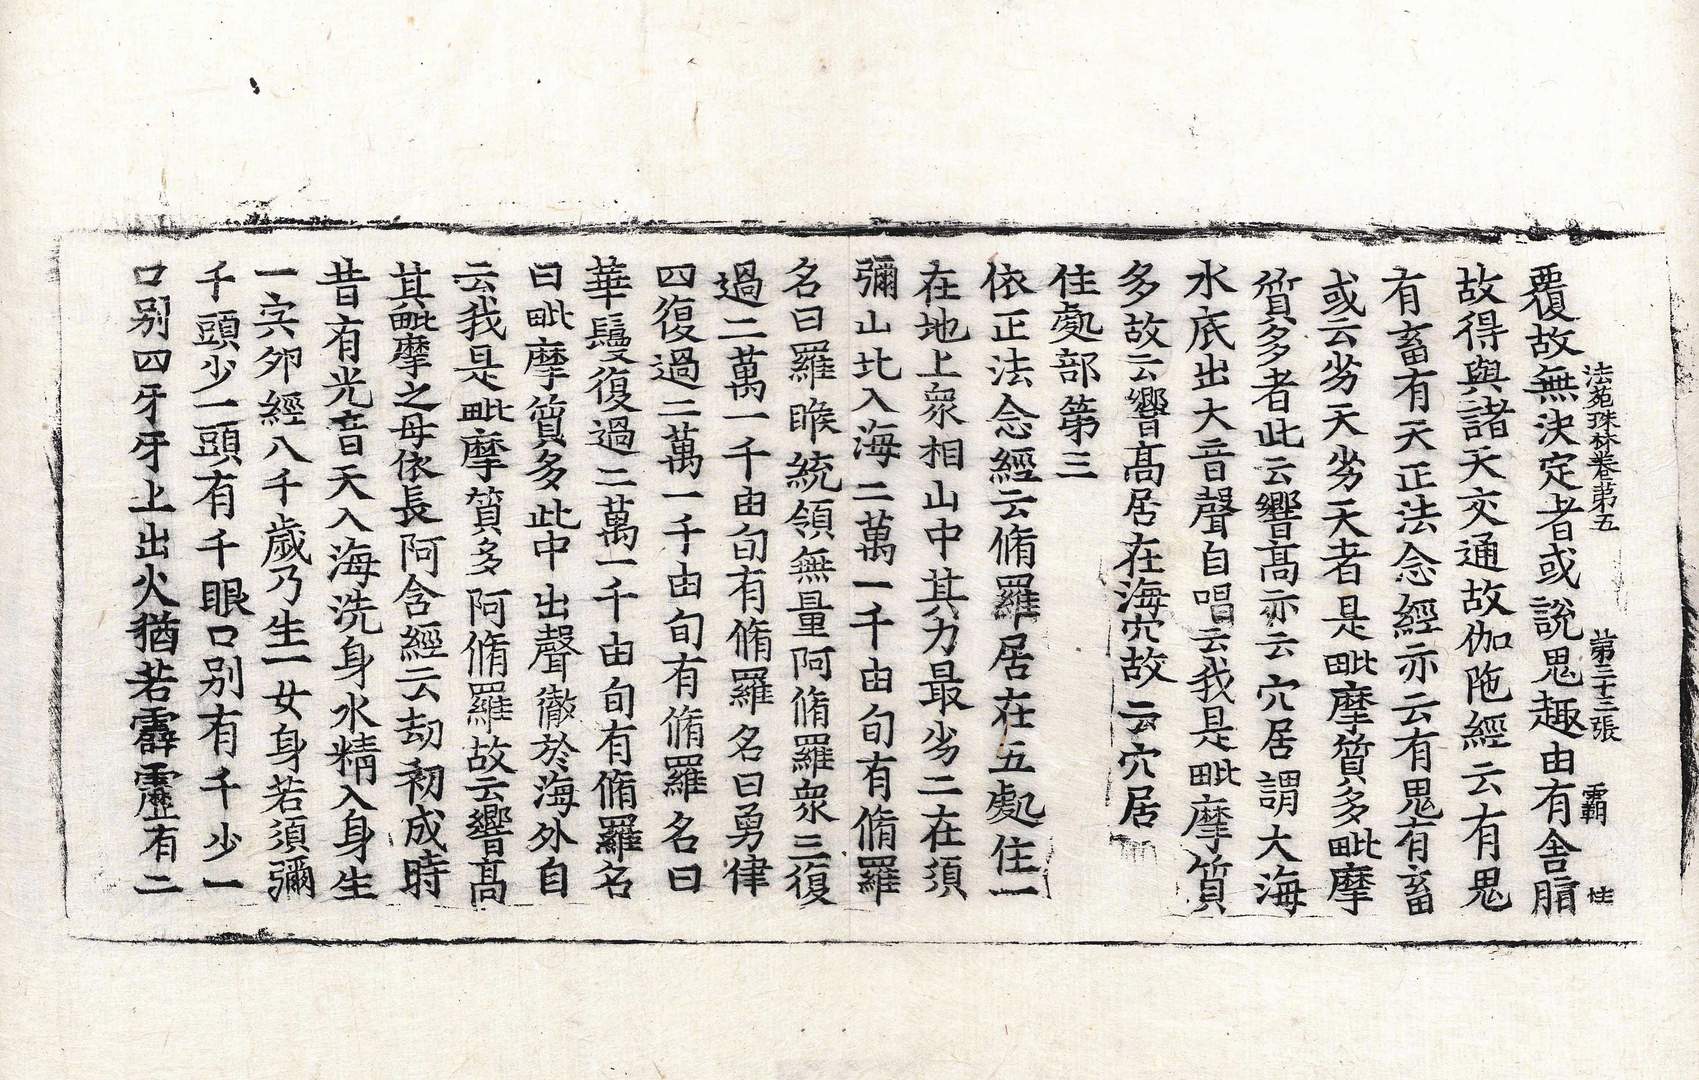 法苑珠林卷第五　第三十三張　覇　性
覆故無決定者或說鬼趣由有舍脂
故得與諸天交通故伽陁經云有鬼
有畜有天正法念經亦云有鬼有畜
或云劣天劣天者是毗摩質多毗摩
質多者此云響高亦云穴居謂大海
水底出大音聲自唱云我是毗摩質
多故云響高居在海穴故云穴居
住處部第三
依正法念經云脩羅居在五處住一
在地上衆相山中其力最劣二在須
彌山北入海二萬一千由旬有脩羅
名曰羅睺統領無量阿脩羅衆三復
過二萬一千由旬有脩羅名曰勇律
四復過二萬一千由旬有脩羅名曰
華鬘復過二萬一千由旬有脩羅名
曰毗摩質多此中出聲徹於海外自
云我是毗摩質多阿脩羅故云響高
其毗摩之母依長阿含經云劫初成時
昔有光音天入海洗身水精入身生
一宍卵經八千歲乃生一女身若須彌
千頭少一頭有千眼口別有千少一
口別四牙牙上出火猶若霹靂有二